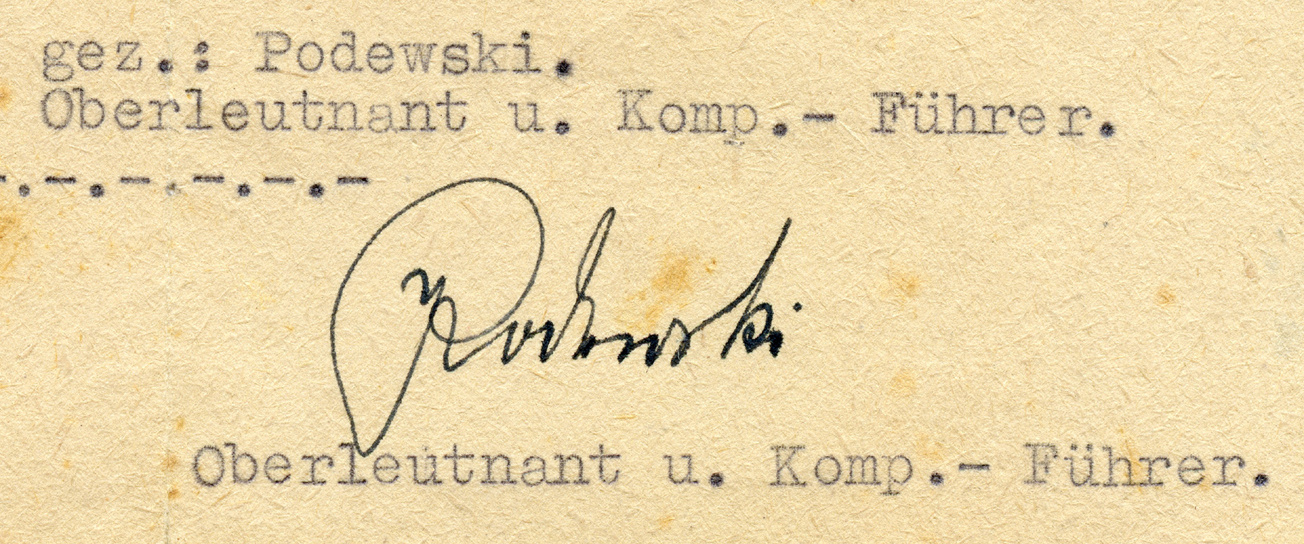 gez.: Podewski.
Oberleutnant u. Komp.- Führer.
-.-.-.-.-.-
Podewski
Oberleutnant u. Komp.- Führer.